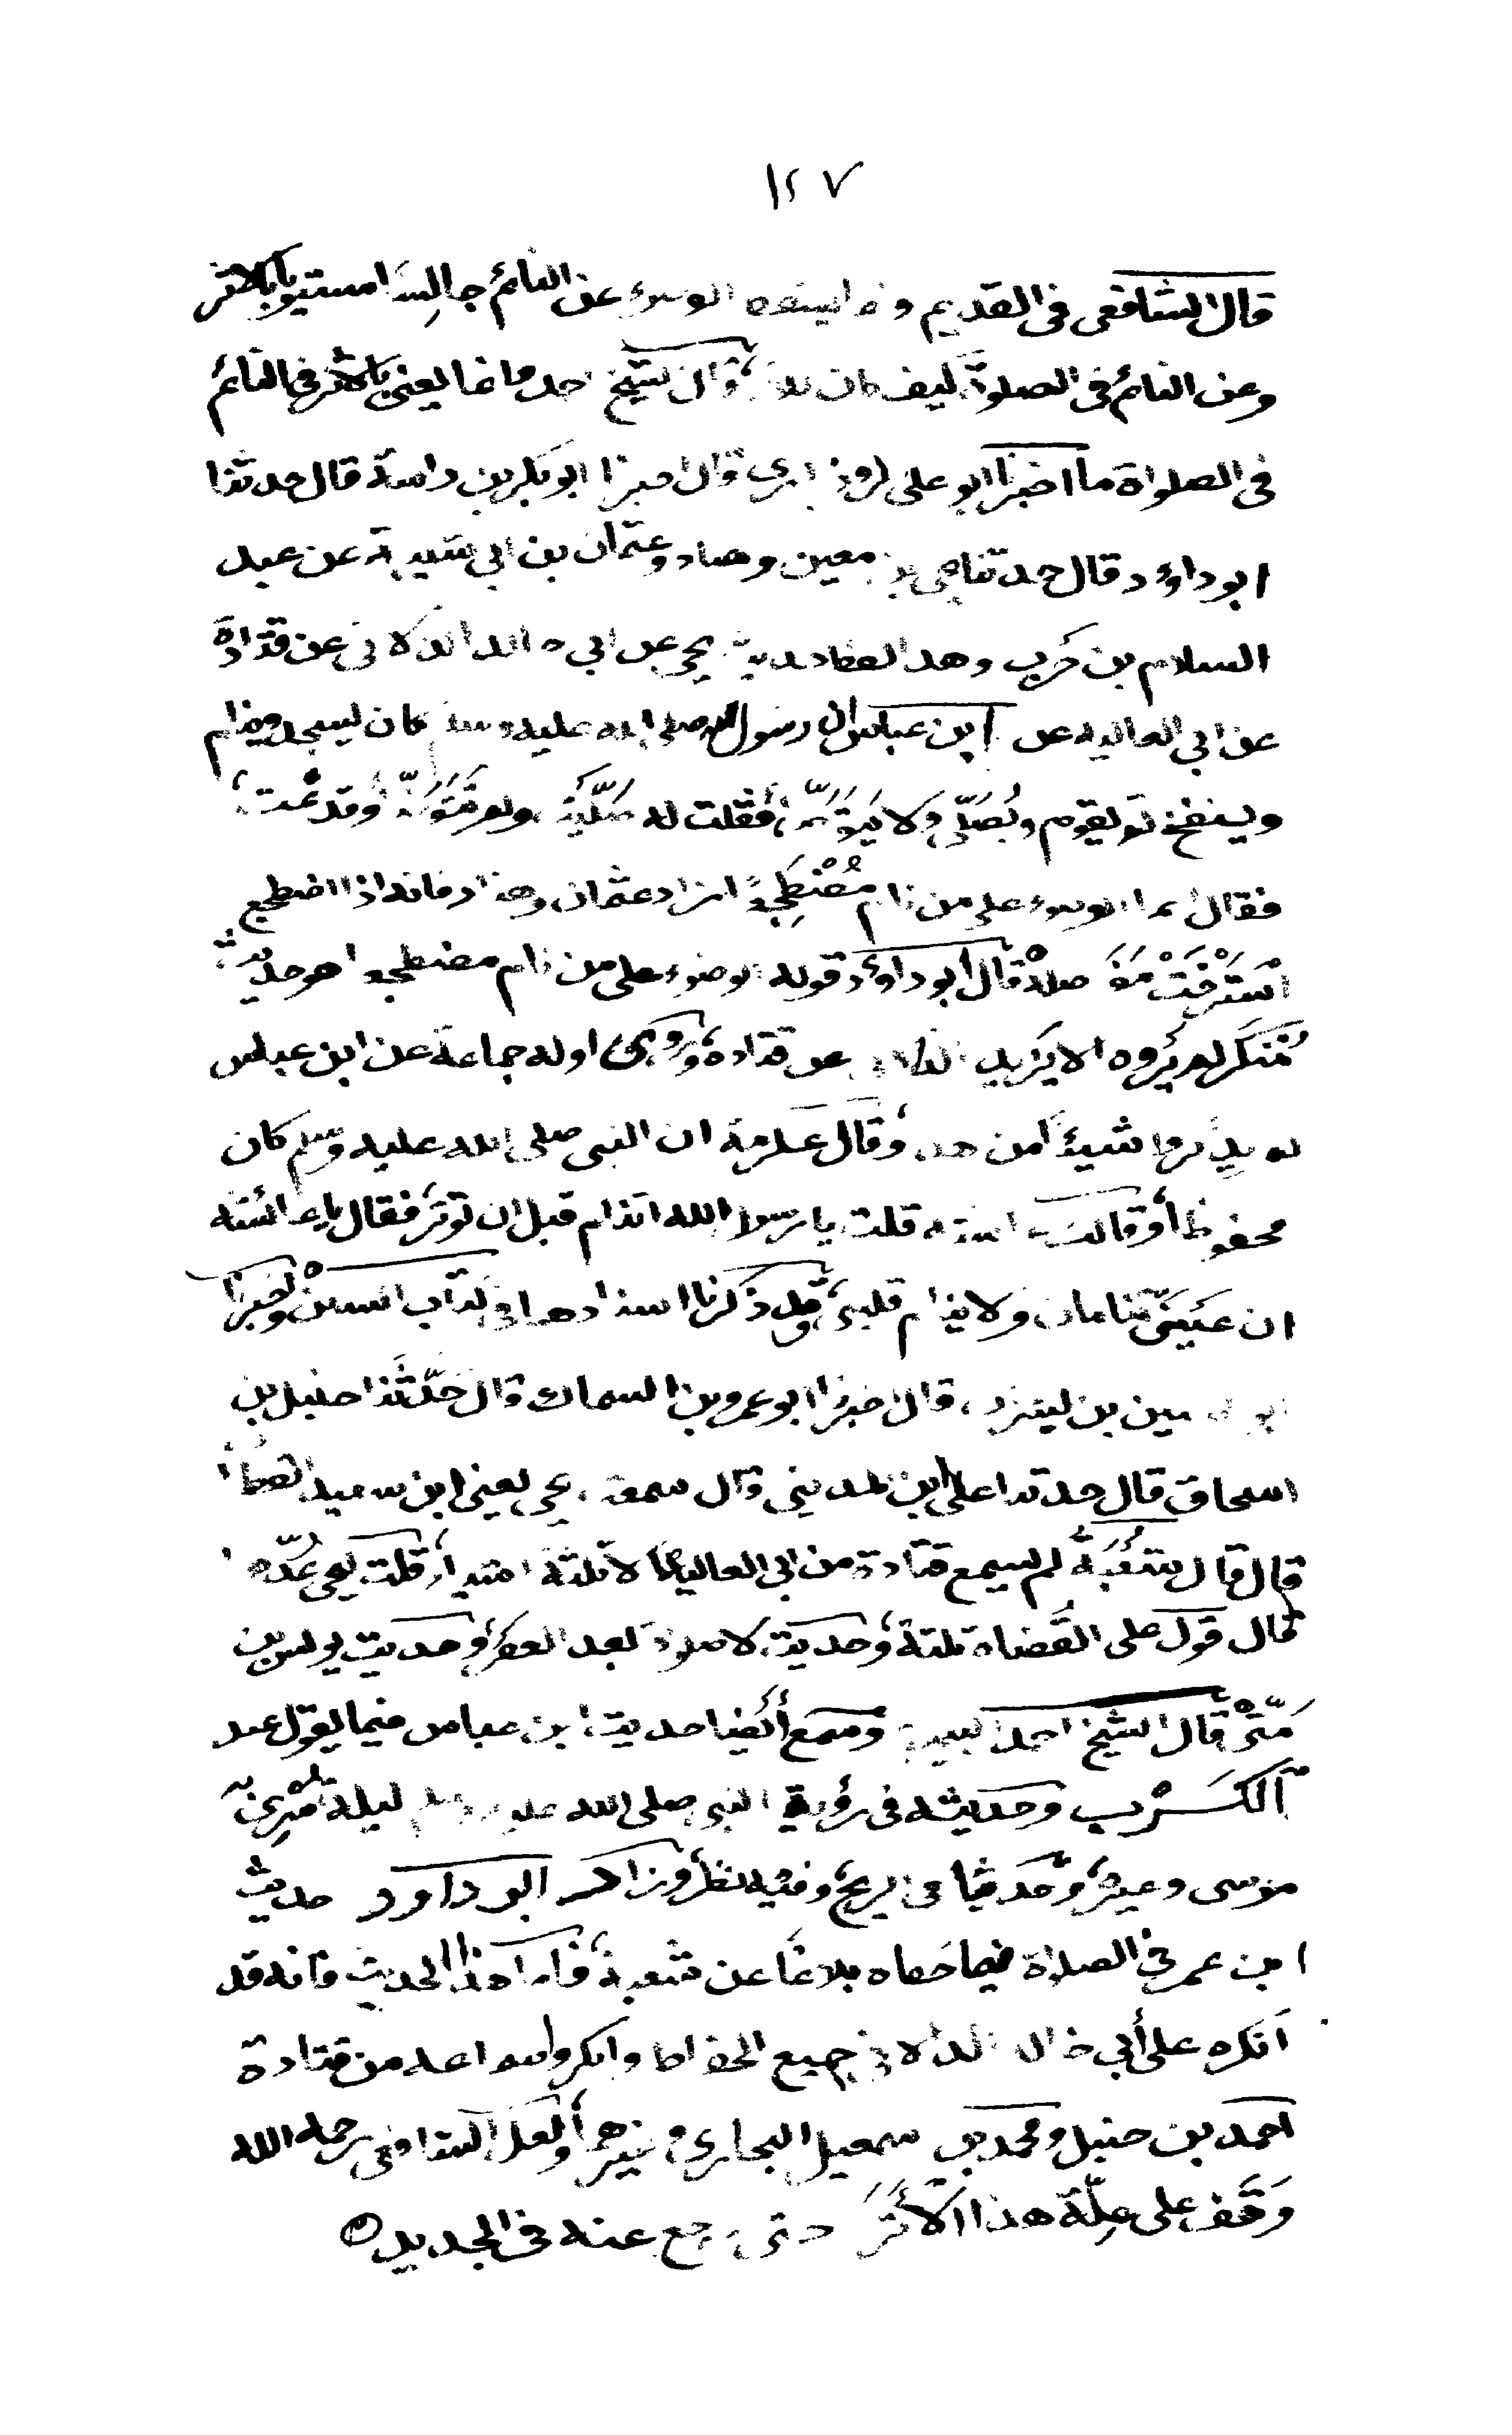 ١٤٧
قال الشافعى فى القديم وقد الوضوء عن النائم جالسا مستويا بالاثر
وعن النائم فى الصلوة كيف كان قال الشيخ احمد يعنى بالاثر فى النائم
فى الصلواة ما اخبرنا ابو على الروذبارى قال اخبرنا ابو بكر بن داسة قال حدثنا
ابو داؤد قال حدثنا يحيى بن معين وهناد وعثمان بن ابى شيبة عن عبد
السلام بن حرب وهذا لفظ حديث يحيى عن ابى خالد الدالانى عن قتادة
عن ابى العالية عن ابن عباس ان رسول الله صلى الله عليه وسلم كان يسجد وينام
وينفخ ثم يقوم ويصلّى ولا يتوضأ فقلت له صلّيت ولم تتوضأ وقد نمت
فقال انما الوضوء على من نام مضطجعا زاد عثمان وهناد فانه اذا اضطجع
استرخت مفاصله قال ابو داؤد قوله الوضوء على من نام مضطجعا هو حديث
منكر لم يروه الا يزيد الدالانى عن قتادة وروى اوله جماعة عن ابن عباس
لم يذكروا شيئا من هذا وقال عكرمة ان النبى صلى الله عليه وسلم كان
محفوظا وقالت عائشة قلت يا رسول الله اتنام قبل ان توتر فقال يا عائشة
ان عينىّ تنامان ولا ينام قلبى وقد ذكرنا اسنادهما فى كتاب السنن واخبرنا
ابو الحسين بن بشران قال اخبرنا ابو عمرو بن السماك قال حدّثنا حنبل بن
اسحاق قال حدثنا على ابن المدينى قال سمعت يحيى يعنى ابن سعيد القطان
قال قال شعبة لم يسمع قتادة من ابى العالية الا ثلثة اشياء قلت ليحيى عدّها
قال قول على القضاة ثلثة وحديث لا صلاة بعد العصر وحديث يونس بن
متّى قال الشيخ احمد وسمع أيضا حديث ابن عباس فيما يقول عند
الكرب وحديثه فى رؤية النبى صلى الله عليه وسلم ليلة أسرى به
موسى وغيره وحديثا فى الريح وفيه نظر وزاد ابو داود حديث
ابن عمر فى الصلاة فيما حكاه بلاغا عن شعبة فاما هذا الحديث فانه قد
انكره على أبى خالد الدالانى جميع الحفاظ وانكروا سماعه من قتادة
احمد بن حنبل ومحمد بن سمعيل البخارى وغيرهما ولعل الشافعى رحمه الله
وقف على علّة هذا الأثر حتى رجع عنه فى الجديد ه